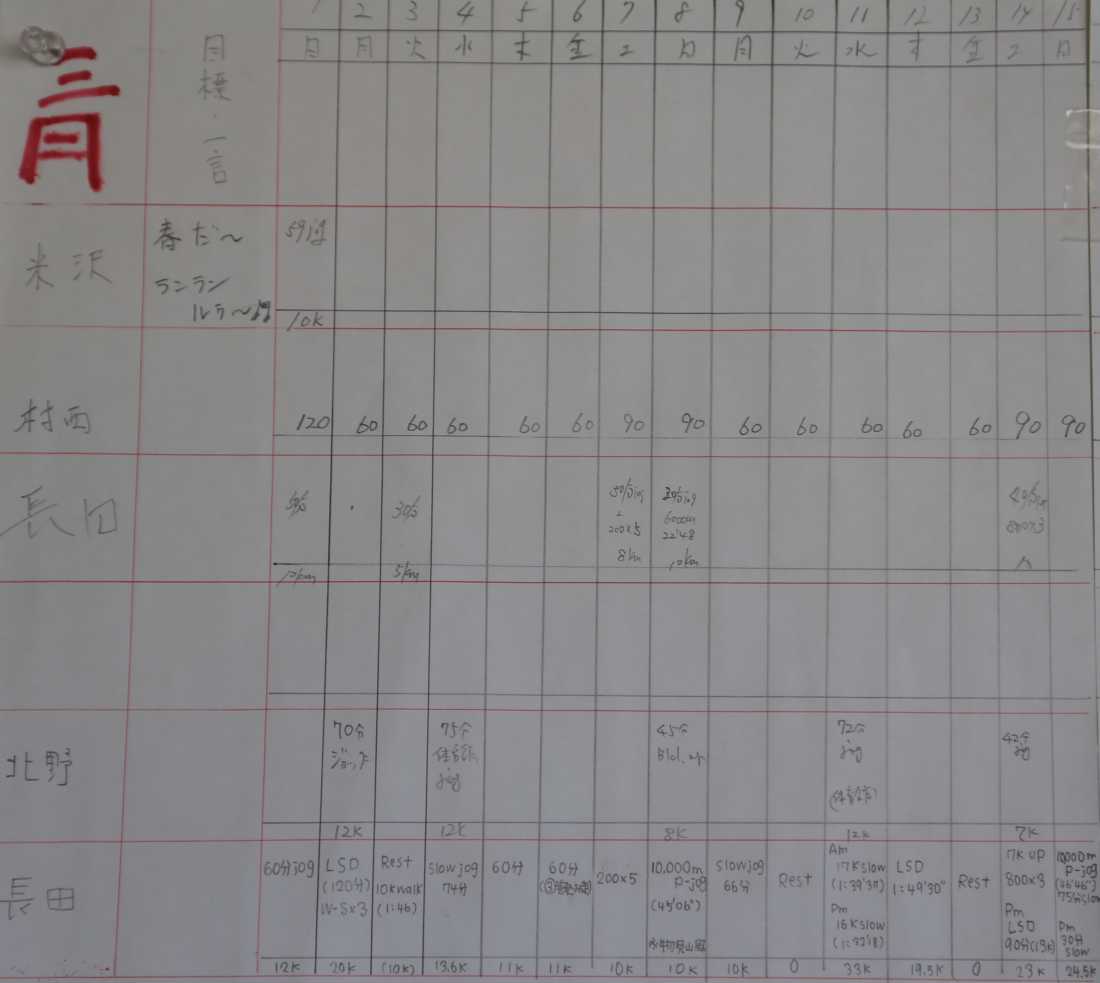 三月
目標・一言
1 2 3 4 5 6 7 8 9 10 11 12 13 14 15
日 月 火 水 木 金 土 日 月 火 水 木 金 土 日
米沢
春だ〜
ランラン
ルラ〜
59jog
10K
村西
120 60 60 60 60 60 90 90 60 60 60 60 60 90 90
長田
30分
5km
50分jog
200×5
8km
30分jog
6000m
22'48
10km
800×3
北野
70分
ジョッグ
12K
75分
jog
12K
45分
8K
72分
jog
12K
42分
jog
7K
長田
60分jog
12K
LSD
(120分)
W-S×3
20K
Rest
10kwalk
(1:46)
(10K)
slowjog
74分
13.6K
60分
11K
60分
11K
200×5
10K
10,000m
P-jog
(45'06")
10K
slowjog
66分
10K
Rest
0
Am
17Kslow
(1:39'38")
Pm
16Kslow
33K
LSD
1:49'30"
19.5K
Rest
0
17K UP
800×3
Pm
LSD
90分(15K)
23K
10000m
P-jog
(46'46")
75分slow
Pm
30分
slow
24.5K